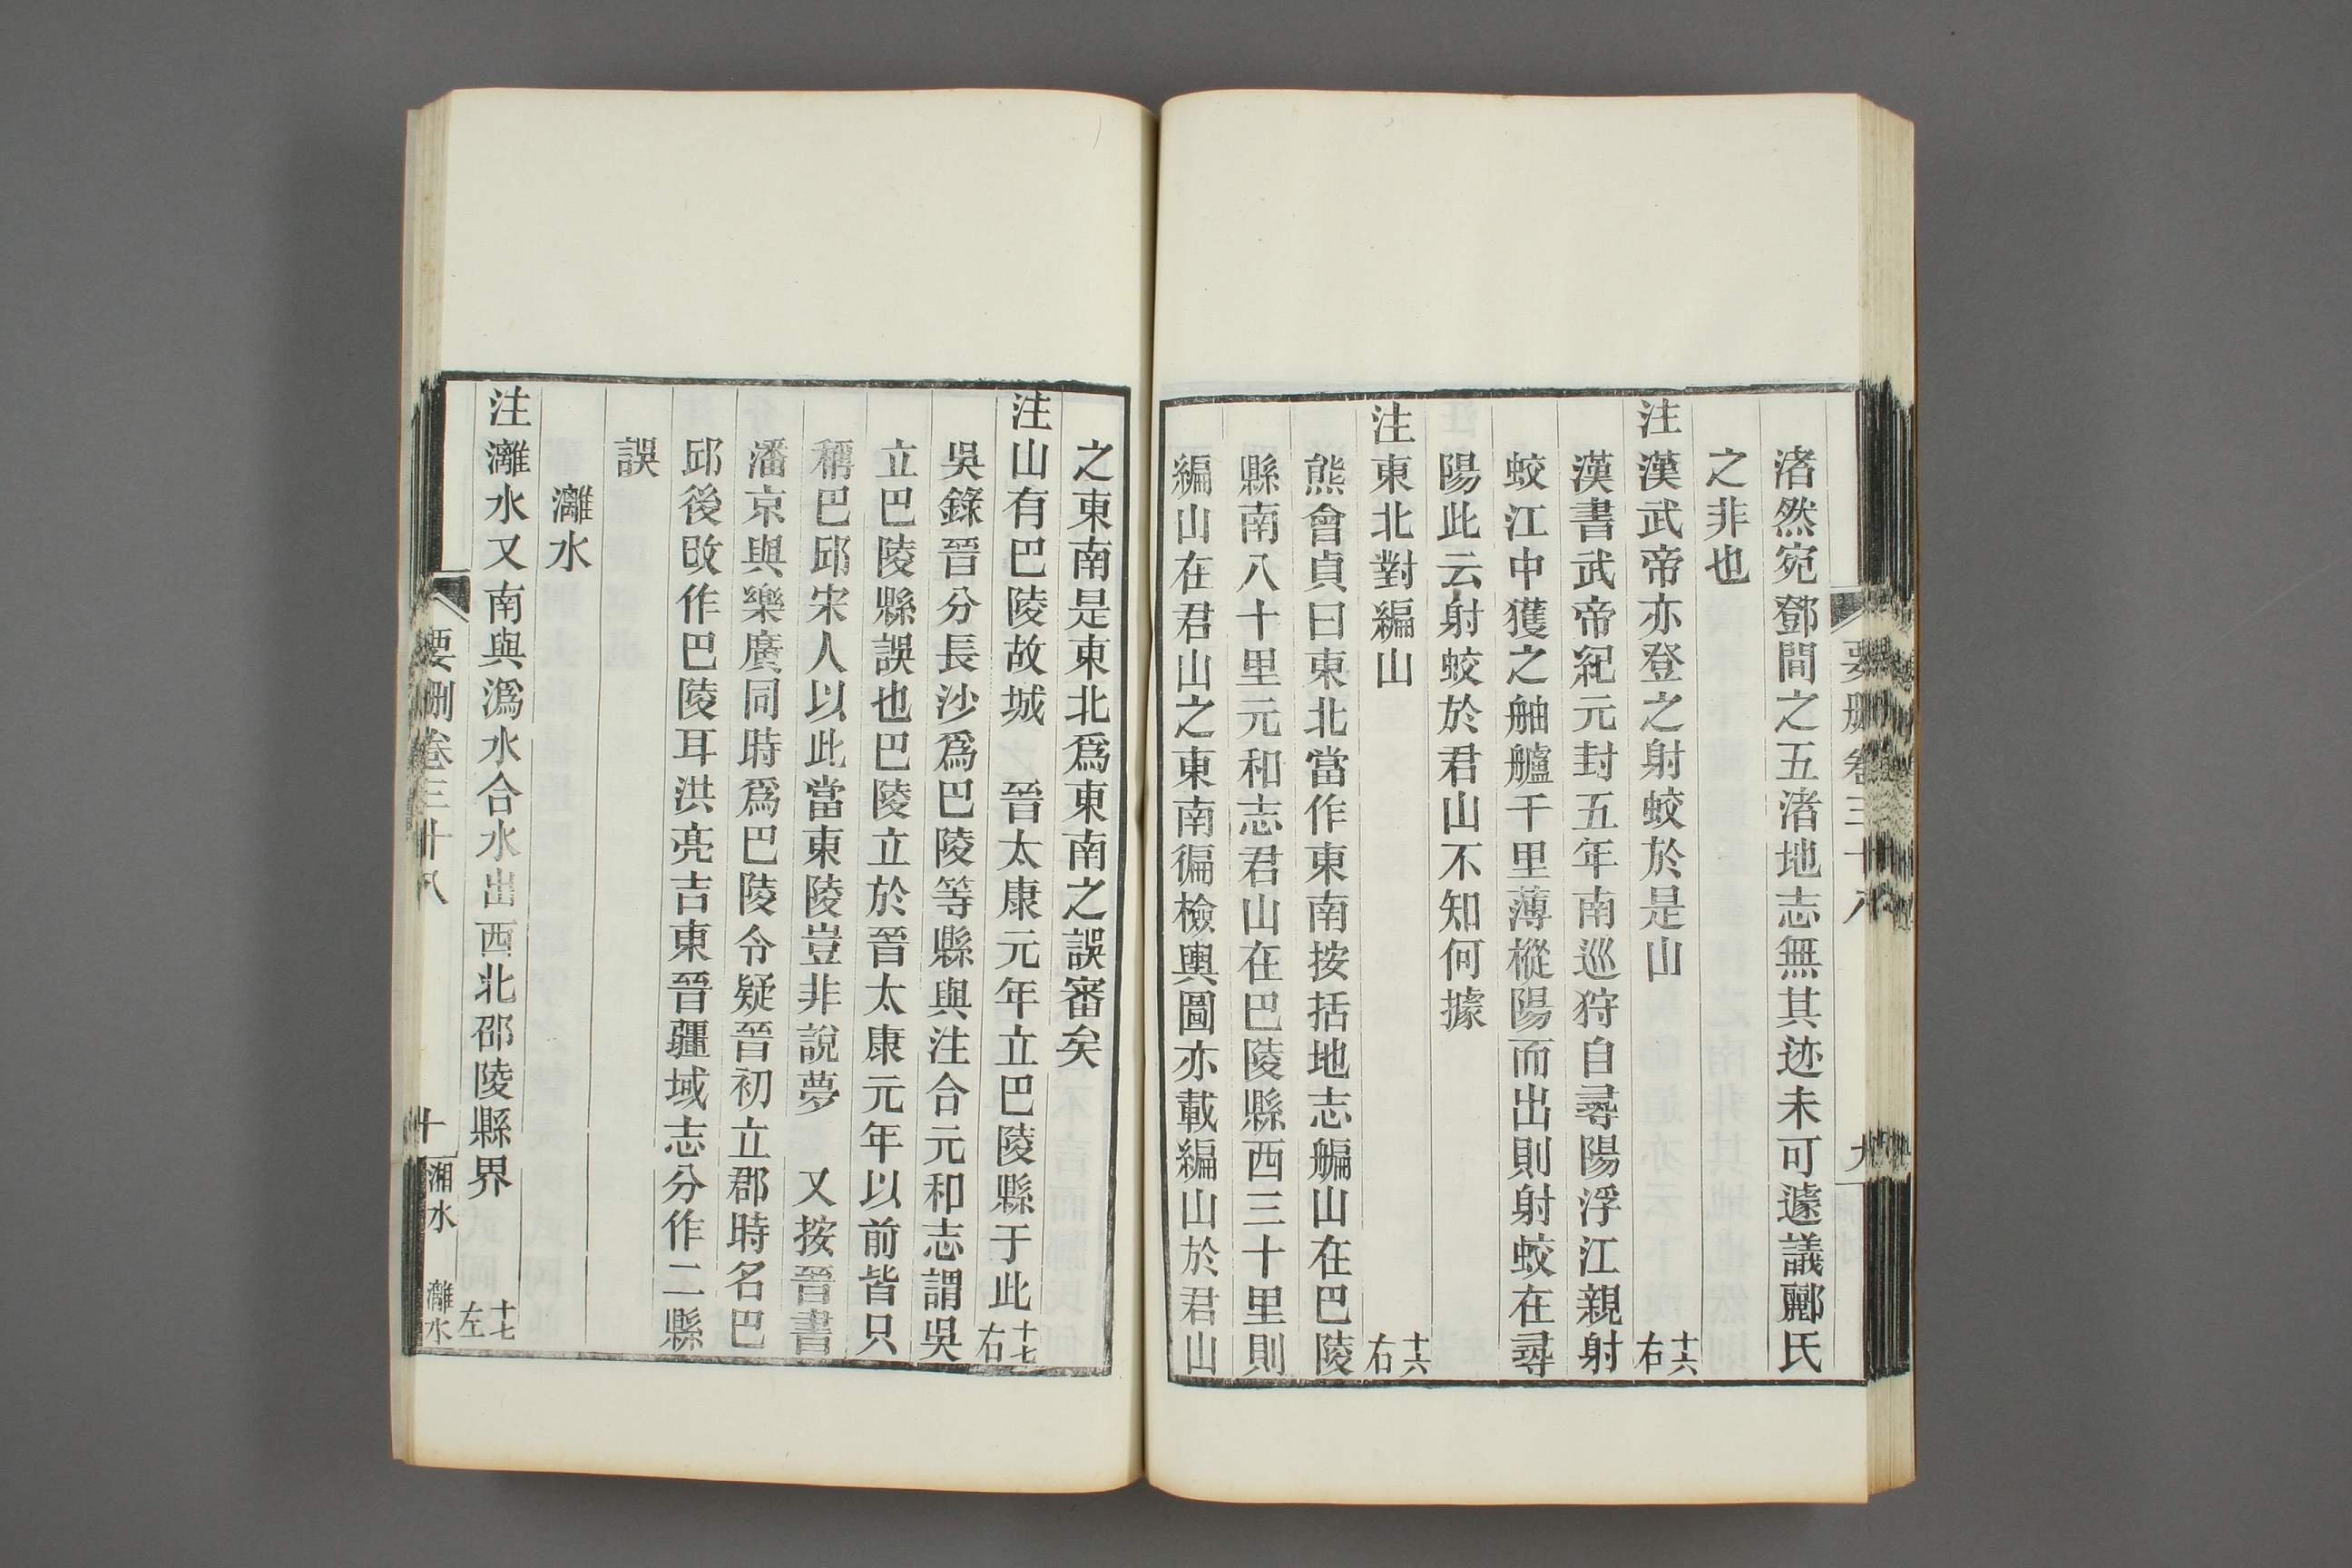 要刪卷三十八
九
渚然宛鄧間之五渚地志無其迹未可遽議酈氏
之非也
注漢武帝亦登之射蛟於是山 十六右
漢書武帝紀元封五年南巡狩自尋陽浮江親射
蛟江中獲之舳艫千里薄樅陽而出則射蛟在尋
陽此云射蛟於君山不知何據
注東北對編山 十六右
熊會貞曰東北當作東南按括地志艑山在巴陵
縣南八十里元和志君山在巴陵縣西三十里則
編山在君山之東南徧檢輿圖亦載編山於君山
之東南是東北爲東南之誤審矣
注山有巴陵故城 晉太康元年立巴陵縣于此 十七右
吳錄晉分長沙爲巴陵等縣與注合元和志謂吳
立巴陵縣誤也巴陵立於晉太康元年以前皆只
稱巴邱宋人以此當東陵豈非說夢 又按晉書
潘京與樂廣同時爲巴陵令疑晉初立郡時名巴
邱後改作巴陵耳洪亮吉東晉疆域志分作二縣
誤
灕水
注灕水又南與潙水合水出西北邵陵縣界 十七左
要刪卷三十八
十
湘水 灕水